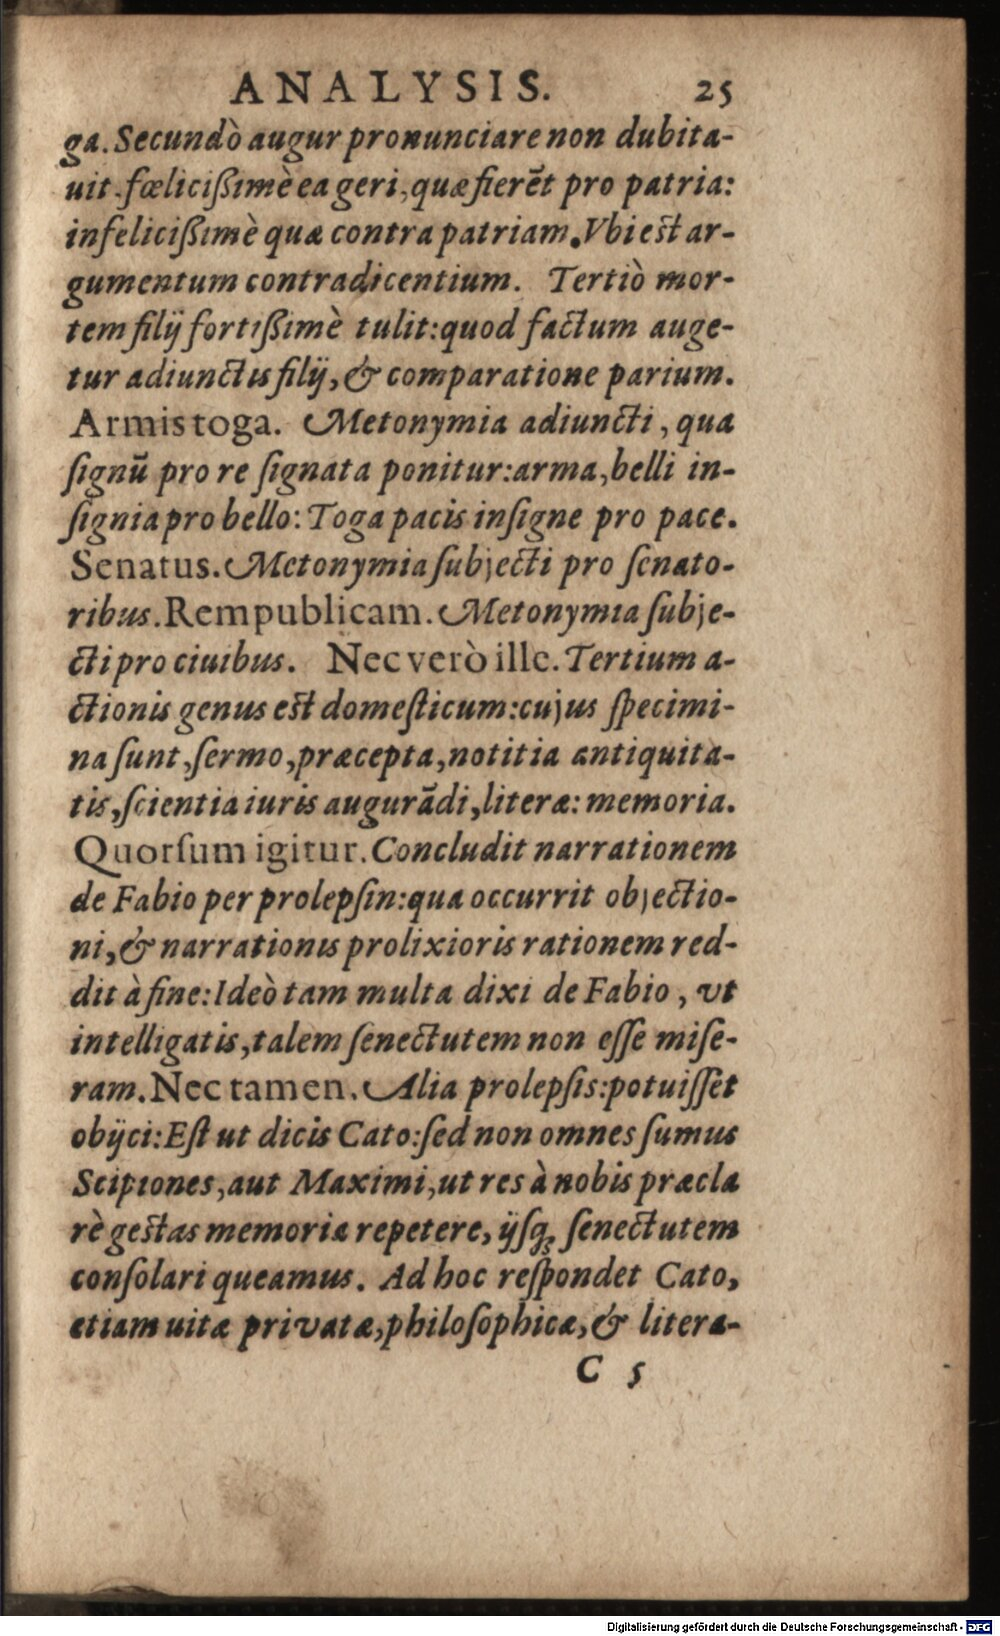 ANALYSIS. 25
ga. Secundò augur pronunciare non dubita-
uit fœliciſsimè ea geri, quæ fierẽt pro patria:
infeliciſsimè quæ contra patriam. Vbi est ar-
gumentum contradicentium. Tertiò mor-
tem filij fortiſsimè tulit: quod factum auge-
tur adiunctis filij, & comparatione parium.
Armis toga. Metonymia adiuncti, qua
ſignũ pro re ſignata ponitur: arma, belli in-
ſignia pro bello: Toga pacis inſigne pro pace.
Senatus. Metonymia ſubjecti pro ſenato-
ribus. Rempublicam. Metonymia ſubje-
cti pro ciuibus. Nec verò ille. Tertium a-
ctionis genus est domeſticum: cujus ſpecimi-
na ſunt, ſermo, præcepta, notitia antiquita-
tis, ſcientia iuris augurãdi, literæ: memoria.
Quorſum igitur. Concludit narrationem
de Fabio per prolepſin: qua occurrit objectio-
ni, & narrationis prolixioris rationem red-
dit à fine: Ideò tam multa dixi de Fabio, vt
intelligatis, talem ſenectutem non eſſe miſe-
ram. Nec tamen. Alia prolepſis: potuiſſet
obijci: Eſt ut dicis Cato: ſed non omnes ſumus
Scipiones, aut Maximi, ut res à nobis præcla
rè gestas memoria repetere, ijſq; ſenectutem
conſolari queamus. Ad hoc reſpondet Cato,
etiam uitæ privatæ, philoſophicæ, & litera-
C 5
Digitalisierung gefördert durch die Deutsche Forschungsgemeinschaft - DFG